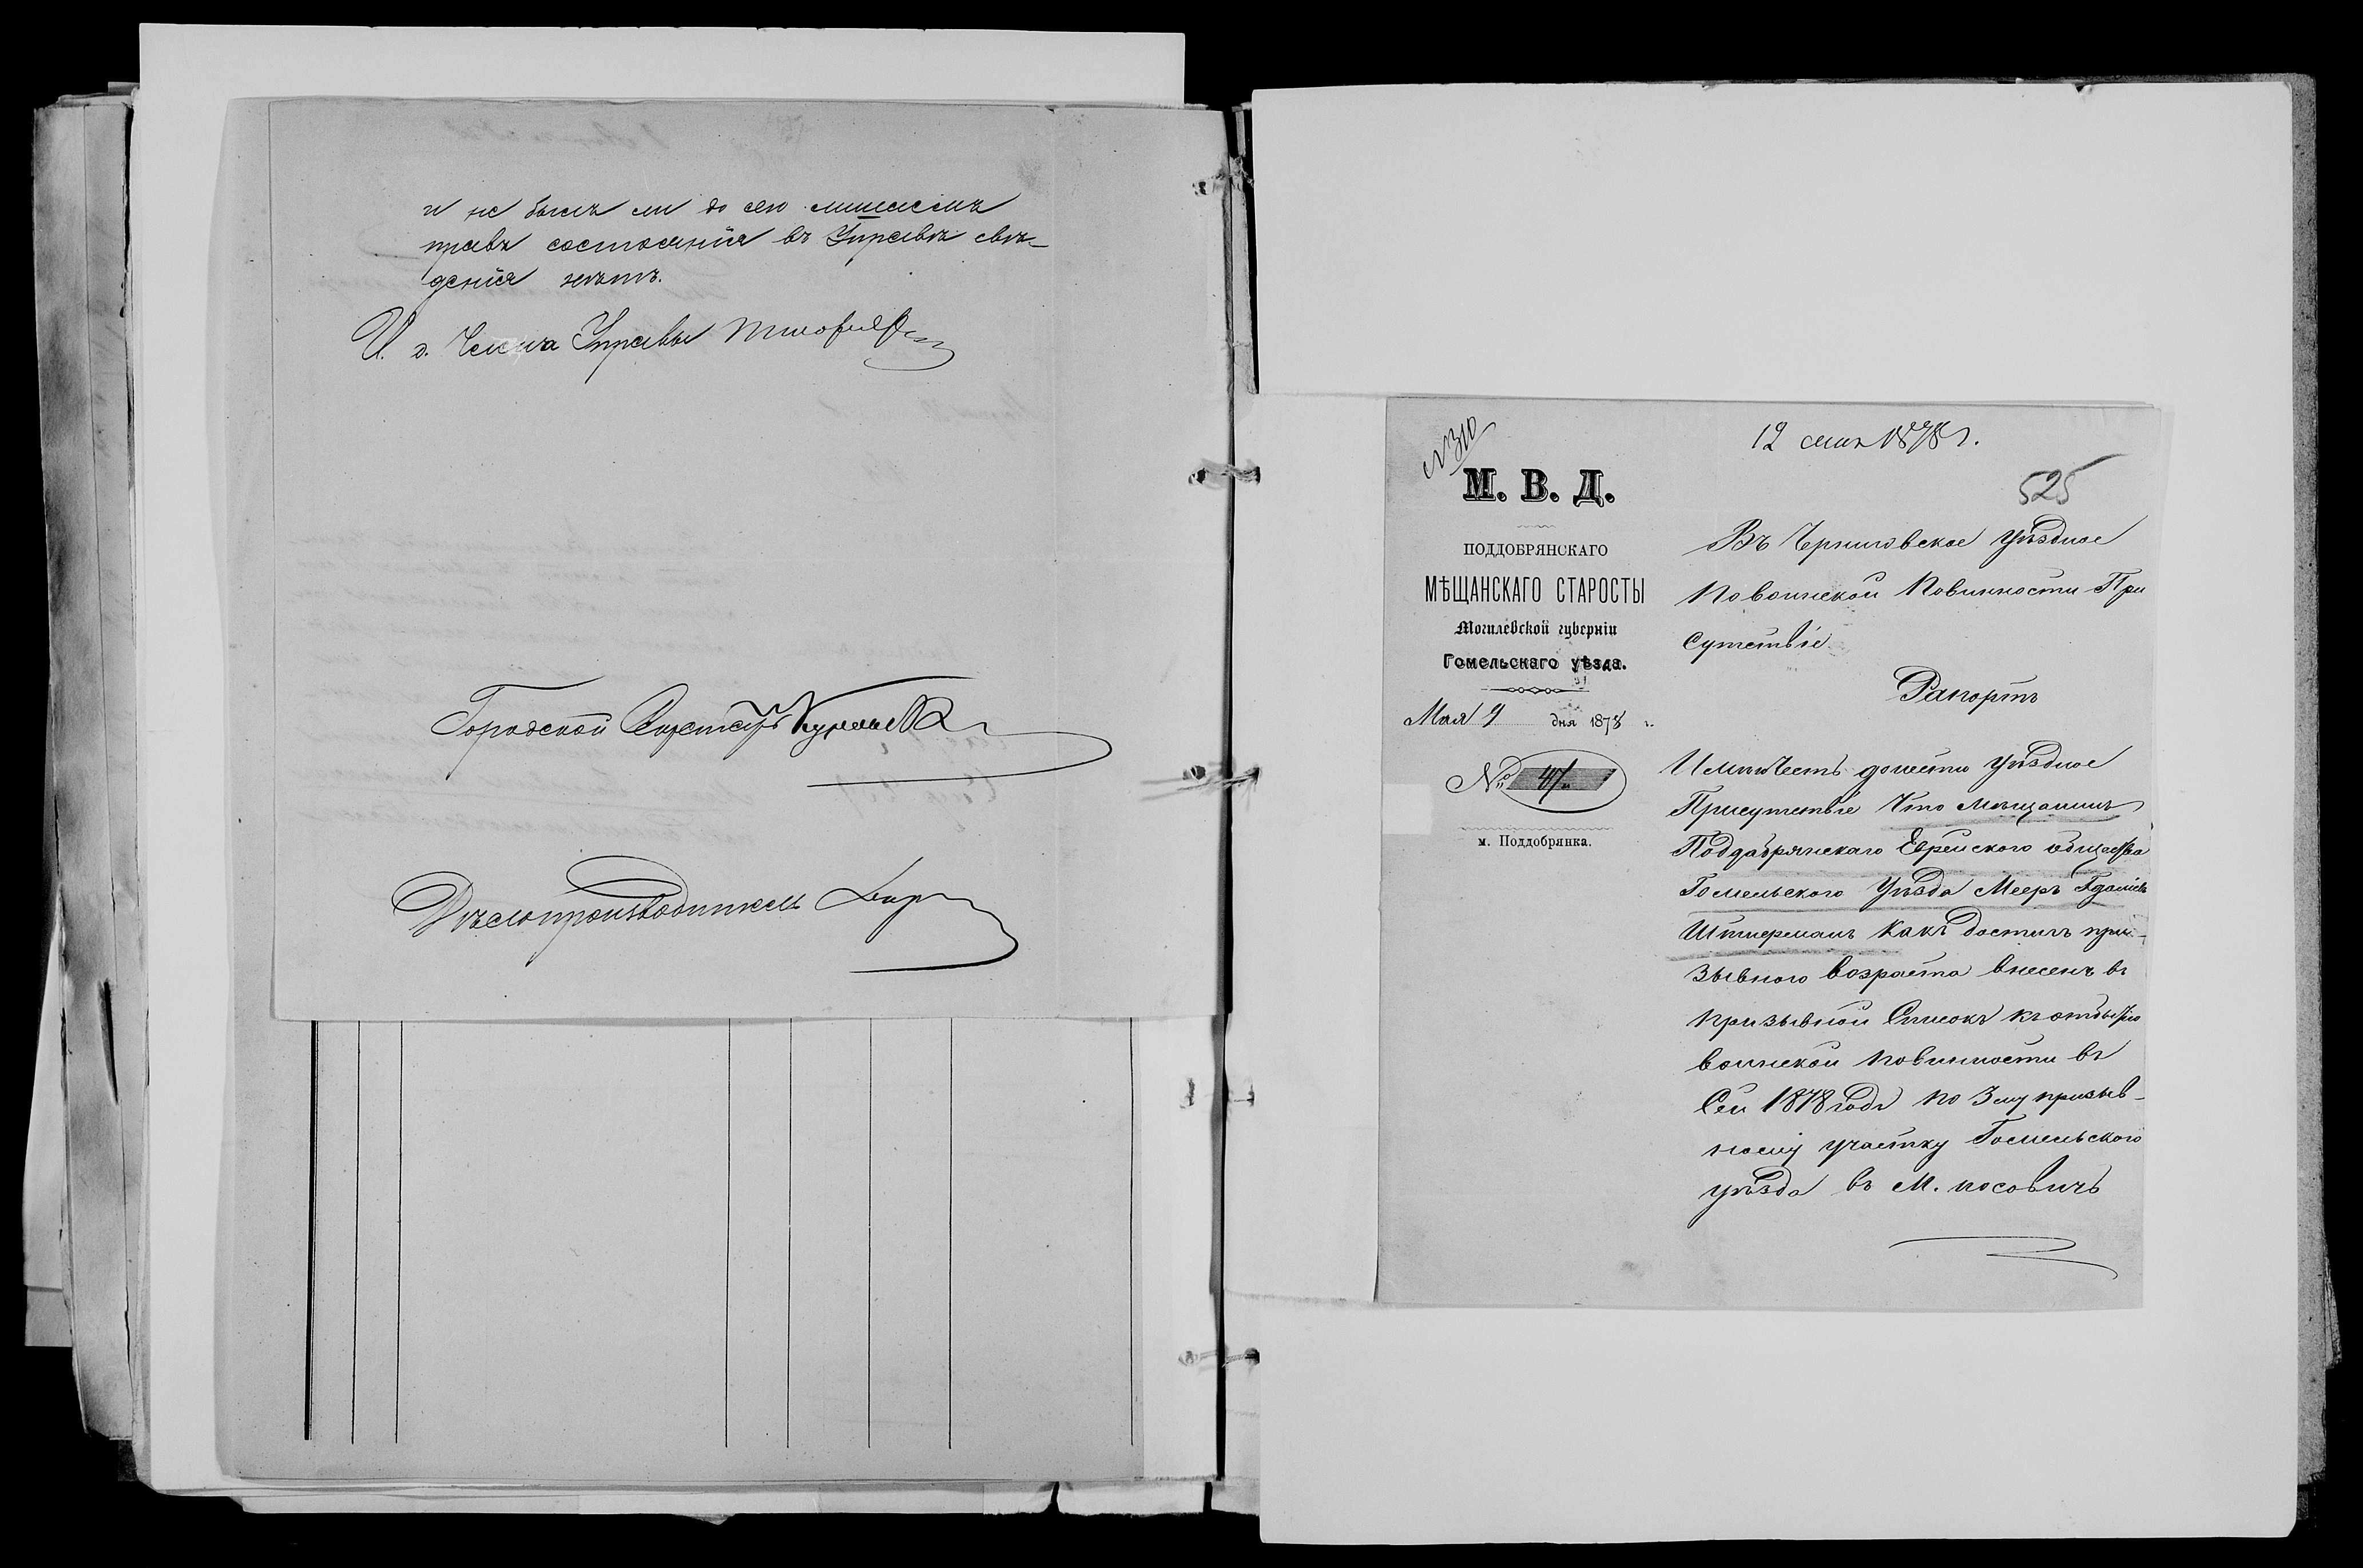 и не былъ ли до сего лишаемъ
правъ состоянія въ Управѣ свѣ-
денія нѣтъ.
И. д. Члена Управы
Городской Секретарь
Дѣлопроизводитель
№310
12 мая 1878 г.
525
М. В. Д.
ПОДДОБРЯНСКАГО
МѢЩАНСКАГО СТАРОСТЫ
Могилевской губерніи
Гомельскаго уѣзда.
Мая 9 дня 1878 г.
№ 47
м. Поддобрянка.
Въ Черниговское уѣздное
По воинской Повинности При
сутствіе
Рапортъ
Имѣю Честь донести уѣздное
Присутствіе Что мѣщанинъ
Поддабрянскаго Еврейского общества
Гомельского Уѣзда Мееръ Гдаліевъ
Штиерманъ Какъ достигъ при-
зывного возраста внесенъ въ
призывной Списокъ къ отбытію
воинской повинности въ
Сем 1878 годѣ по 3му призыв-
ному участку Гомельского
уѣзда въ М. носовичъ